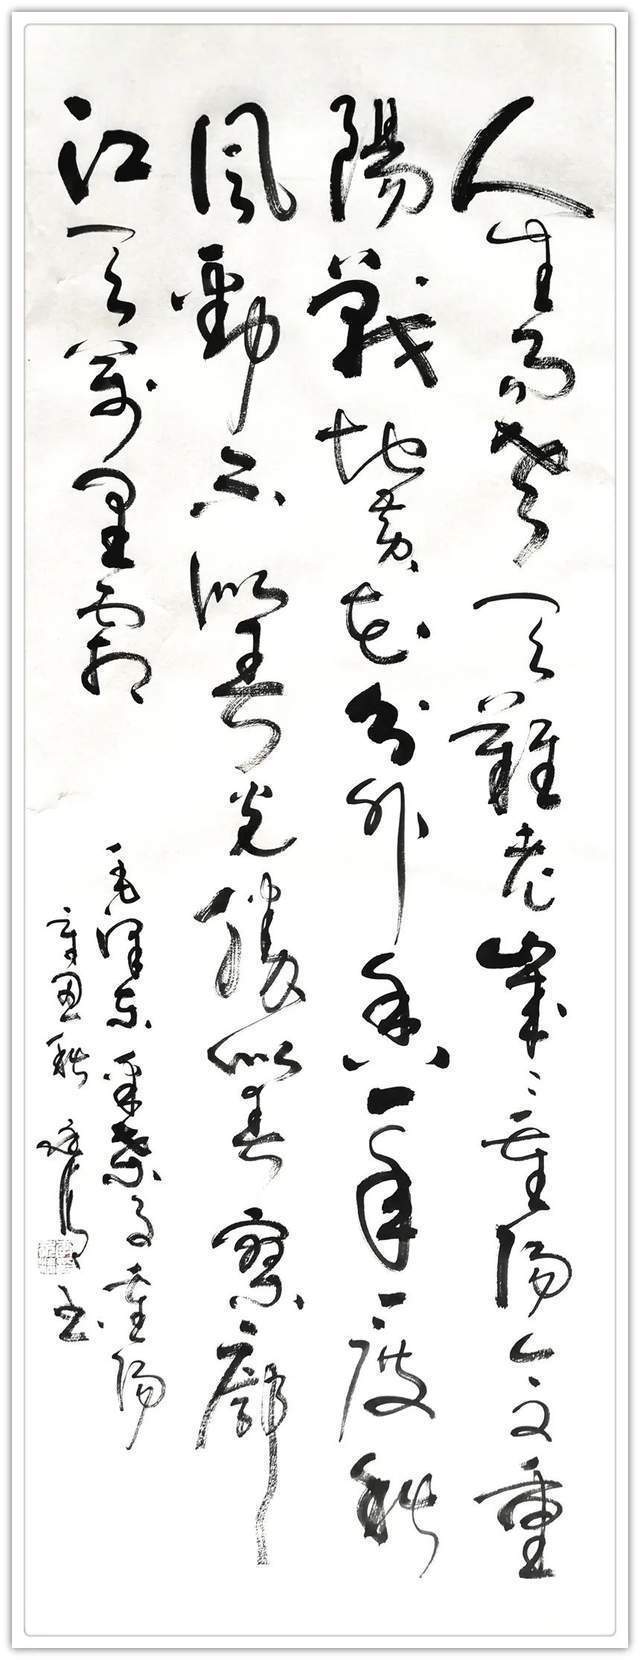 人生易老天難老歲〻重陽今又重
陽戰地黃花分外香一年一度秋
風勁不似春光勝似春寥廓
江天萬里霜
毛澤東采桑子重陽
辛丑秋 书